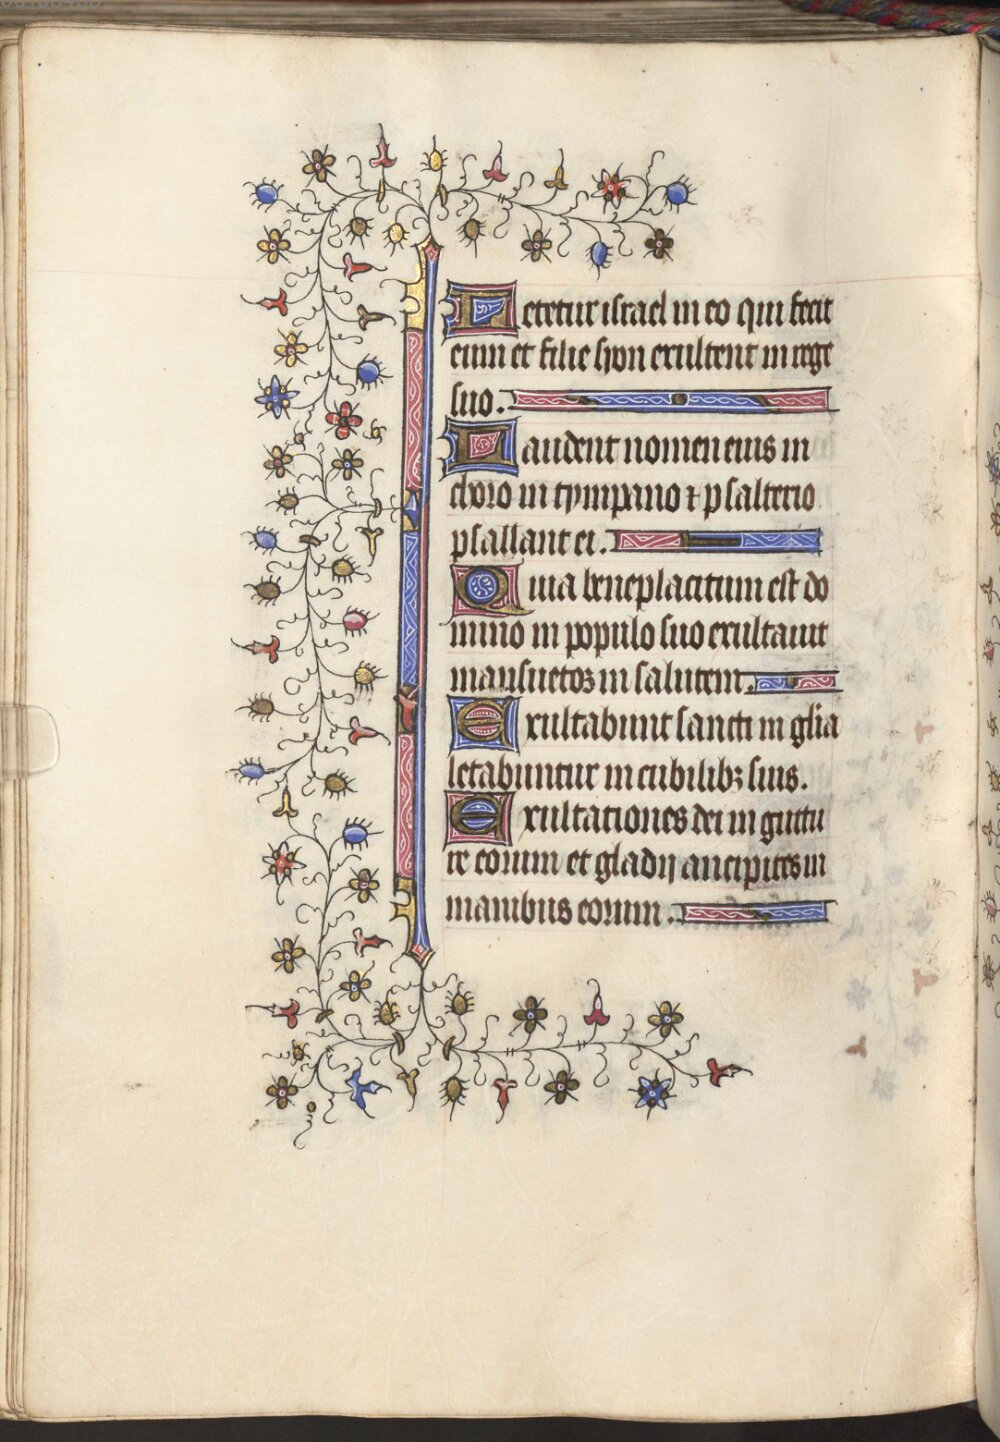 Letetur israel in eo qui fecit
eum et filie syon exultent in rege
suo.
Laudent nomen eius in
choro in tympano ⁊ psalterio
psallant ei.
Quia beneplacitum est do
mino in populo suo exultauit
mansuetoꝫ in salutem.
Exultabunt sancti in glia
letabuntur in cubilibꝫ suis.
Exultationes dei in guttu
re eorum et gladij ancipites in
manibus eorum.